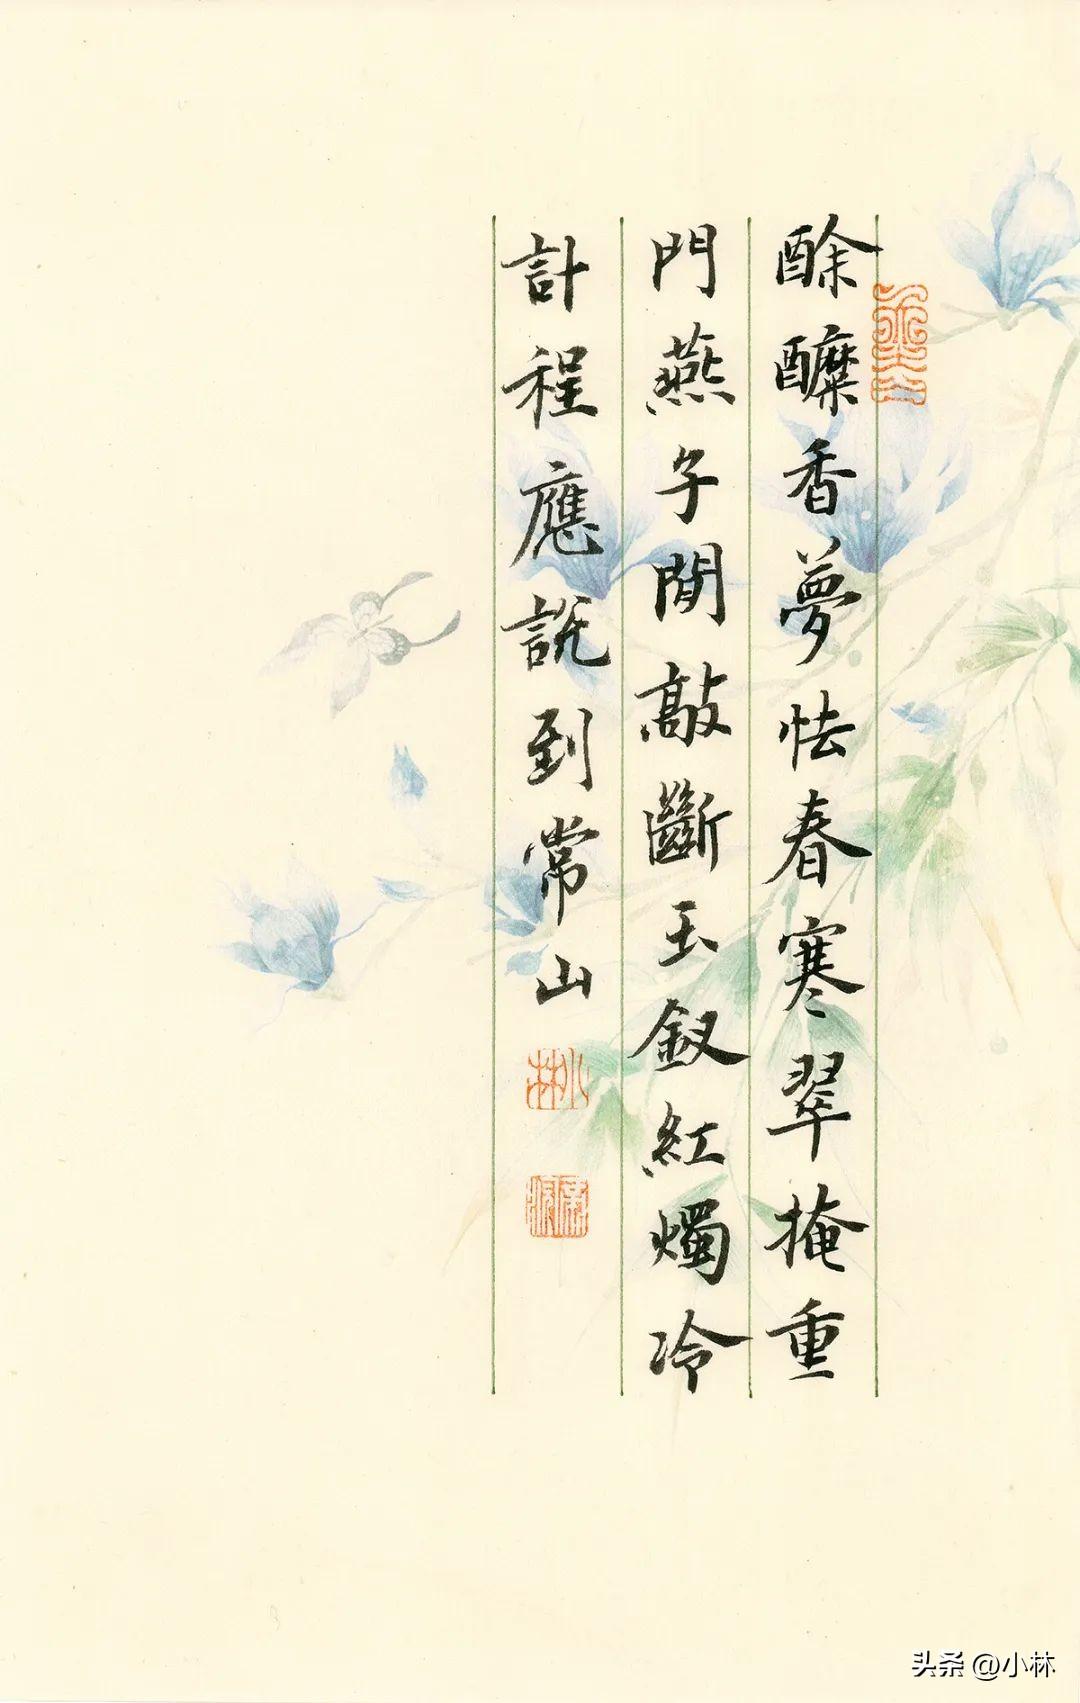 酴醿香夢怯春寒翠掩重
門燕子閒敲斷玉釵紅燭冷
計程應説到常山
小林
头条 @小林